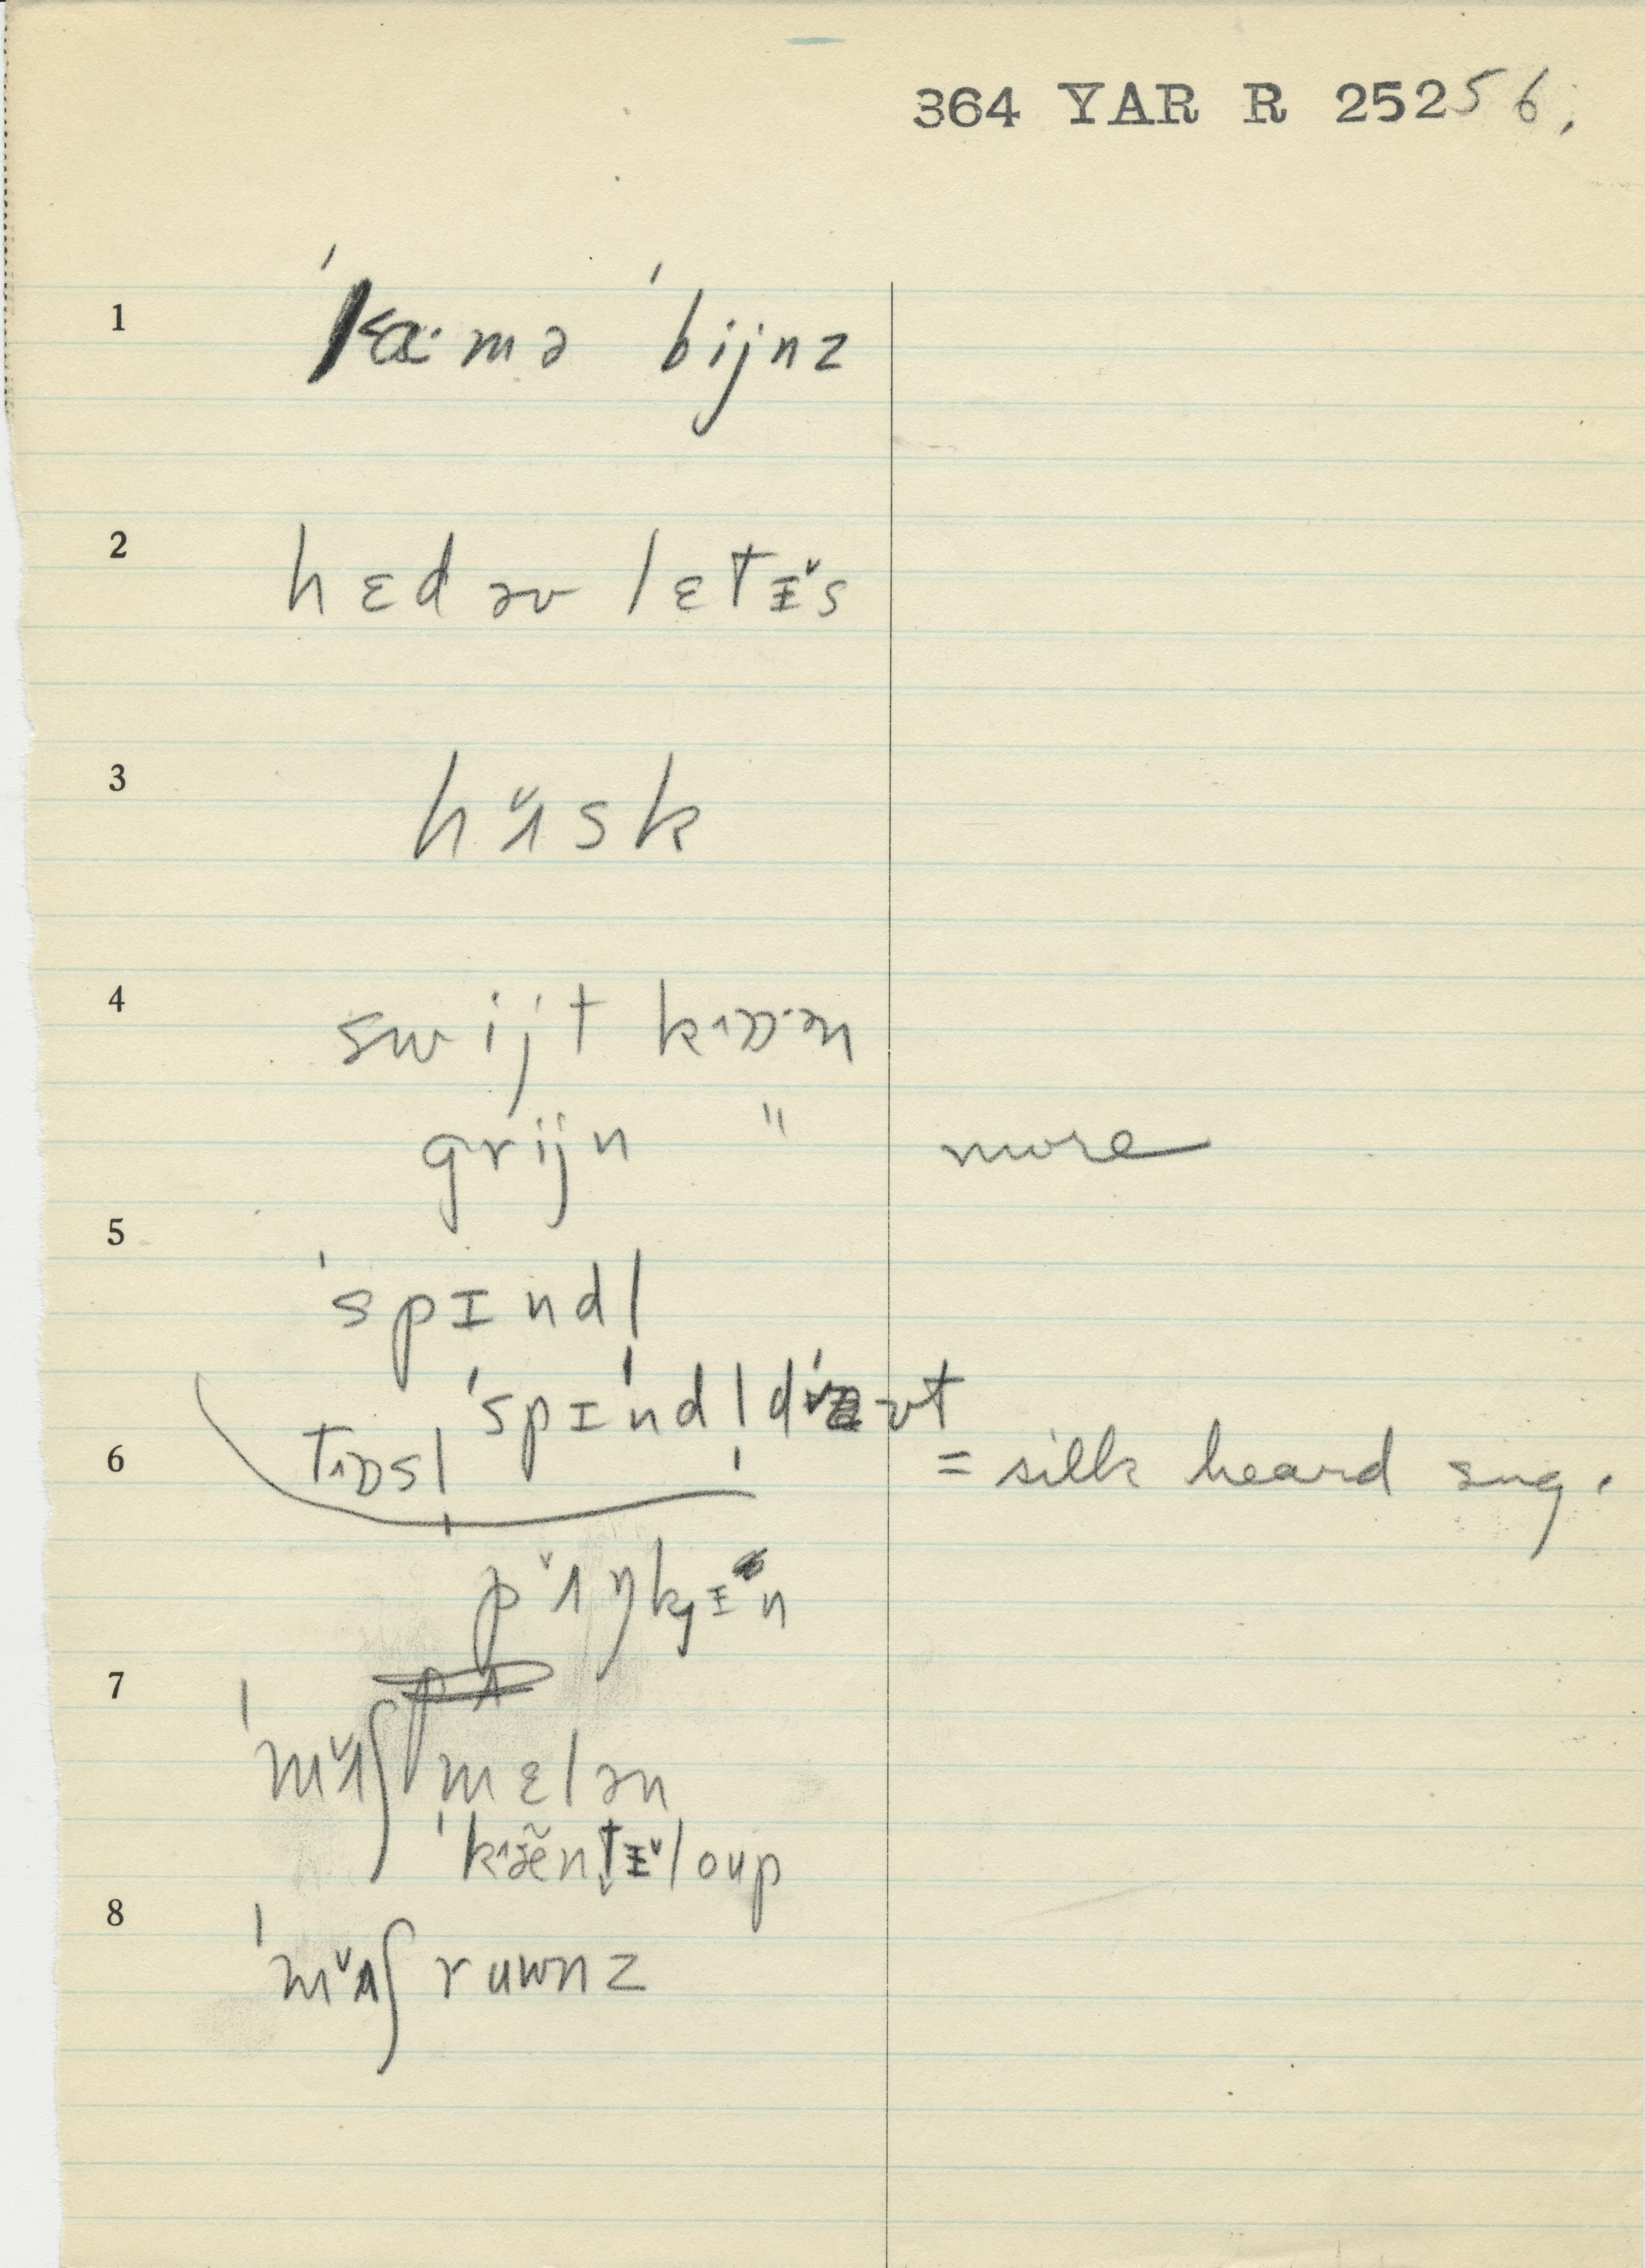 364 YAR R 25256.
1 ˈlæ·mə ˈbijnz
2 hɛd əv lɛtɪ˅s
3 hʌ˅sk
4 swijt kɒ·ən
grijn " more
5
ˈspɪndl
ˈspɪndl̩d ˈaʊt
6 tɒsl̩ = silk heard sug.
pʌ˅ŋkɪn
7
ˈmʌ˅ʃmɛlən
ˈkæ̃ntɪ˅loup
8
ˈmʌ˅ʃruwnz